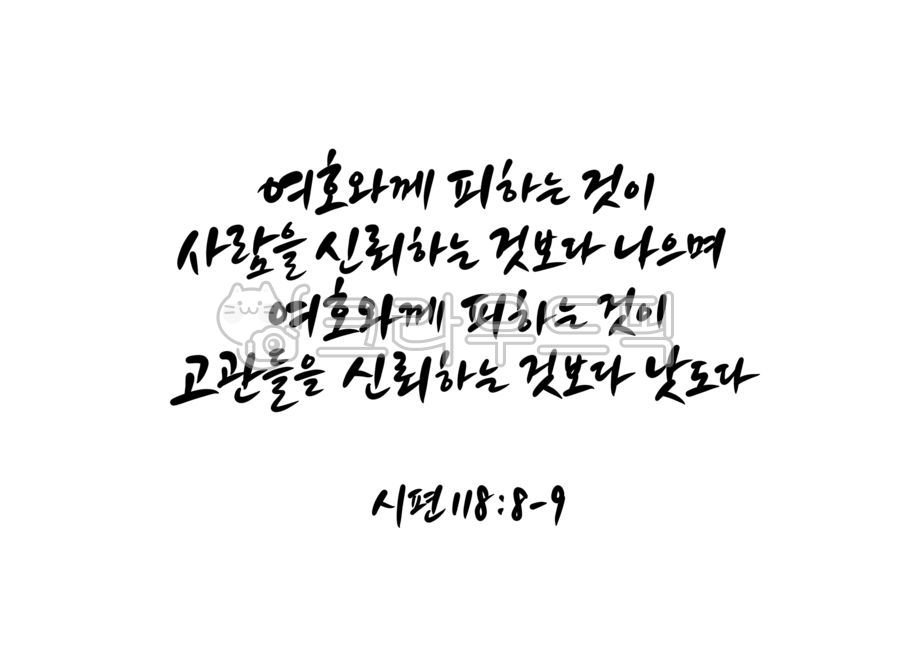 여호와께 피하는 것이
사람을 신뢰하는 것보다 나으며
여호와께 피하는 것이
고관들을 신뢰하는 것보다 낫도다
시편 118:8-9
크라우드픽